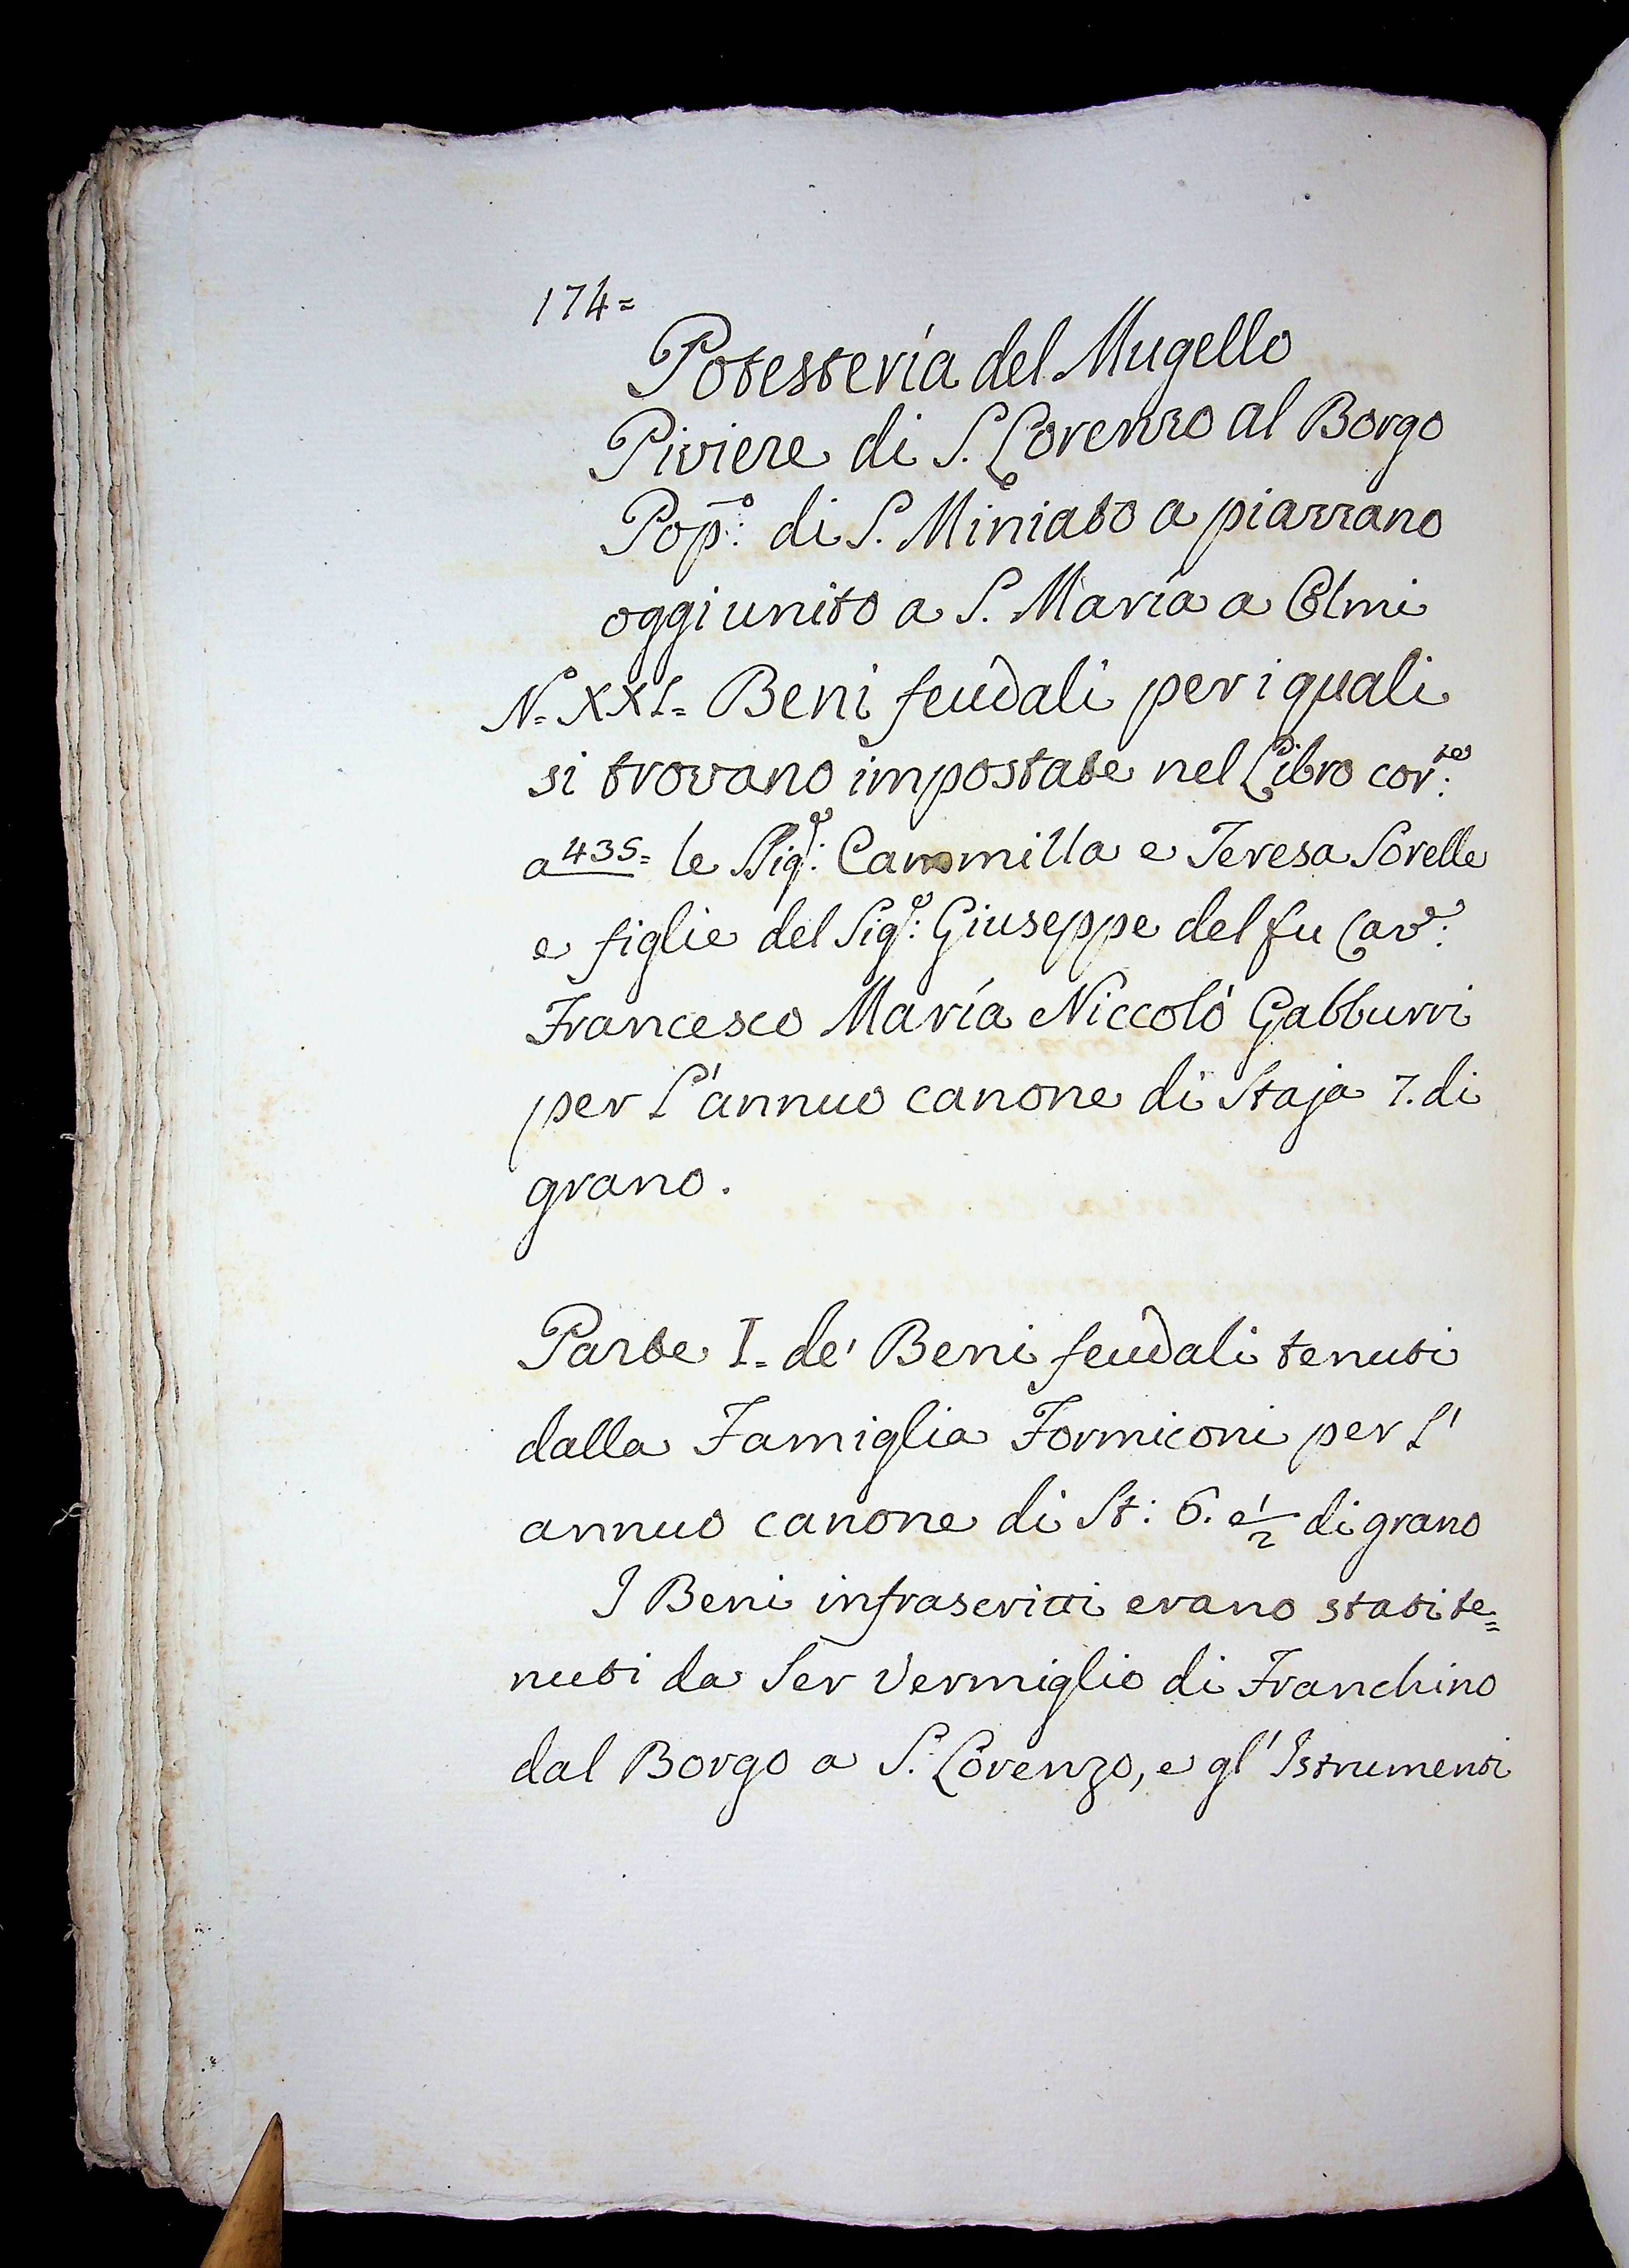 174=
Potesteria del Mugello
Piviere di S. Lorenzo al Borgo
Pop.º di S. Miniato a piazzano
oggi unito a S. Maria a Olmi
N.º XXI= Beni feudali per i quali
si trovano impostate nel Libro cor.te
a 435= le SSig.e Cammilla e Teresa Sorelle
e figlie del Sig.e Giuseppe del fu Cav.e
Francesco Maria Niccolò Gabburri
per l'annuo canone di Staja 7. di
grano.
Parte I= de' Beni feudali tenuti
dalla Famiglia Formiconi per l'
annuo canone di St: 6. e 1/2 di grano
I Beni infrascritti erano stati te=
nuti da Ser Vermiglio di Franchino
dal Borgo a S. Lorenzo, e gl' Istrumenti